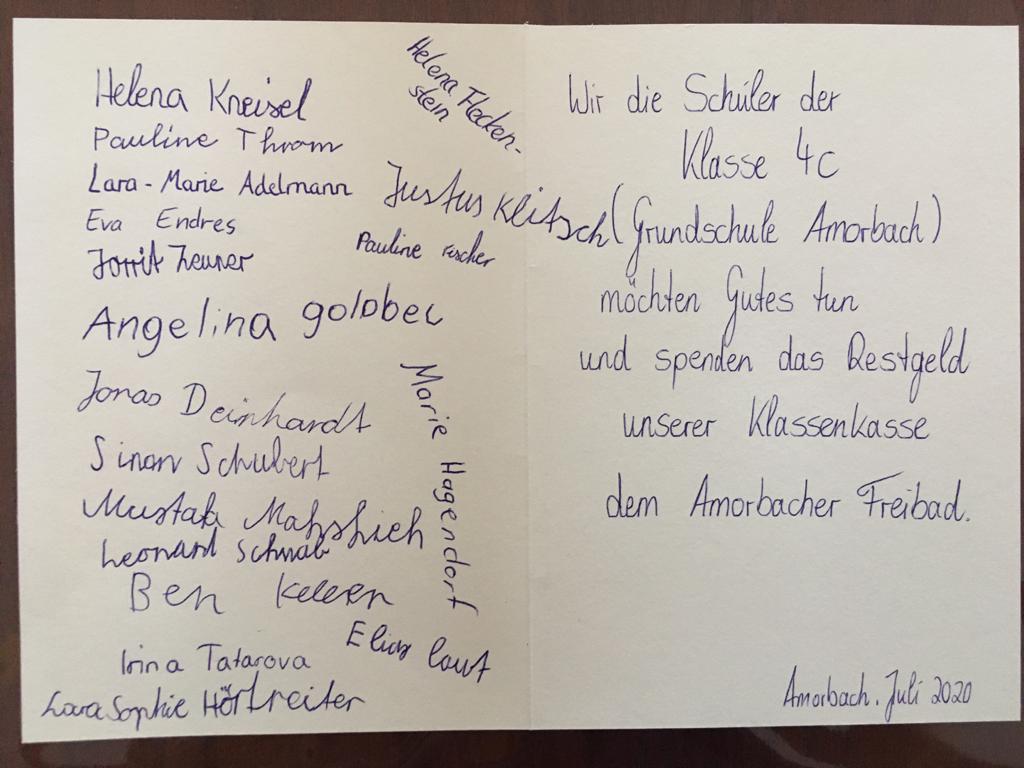 Helena Kneisel
Pauline Throm
Lara-Marie Adelmann
Eva Endres
Jorrit Zeuner
Angelina golbbec
Jonas Deinhardt
Sinan Schubert
Mustafa
Leonard Schwab
Ben
Irina Tatarova
Lara Sophie Hörtreiter
Helena Flecken-
stein
Justus Klitsch
Pauline Fischer
Marie Hagendorf
Elias
Wir die Schüler der
Klasse 4c
(Grundschule Amorbach)
möchten Gutes tun
und spenden das Restgeld
unserer Klassenkasse
dem Amorbacher Freibad.
Amorbach. Juli 2020